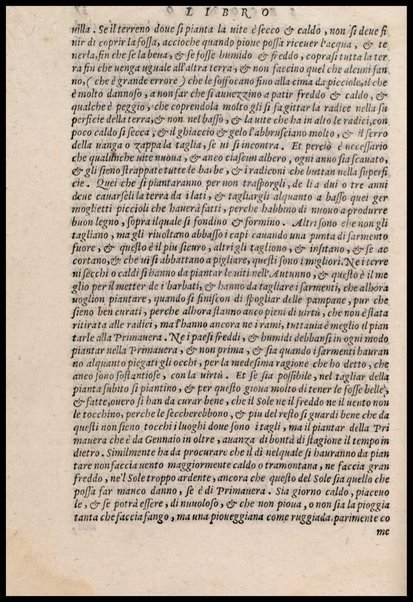 LIBRO
villa. Se il terreno doue si pianta la uite è secco & caldo, non si deue fi
nir di coprir la fossa, accioche quando pioue possa riceuer l'acqua, & te
nerla, fin che se la beua, & se fosse humido & freddo, coprasi tutta la ter
ra fin che uenga uguale all'altra terra, & non faccino quel che alcuni fan
no, (che è grande errore) che le soffocano fino alla cima da picciole, il che
è molto dannoso, a non far che si auuezzino a patir freddo & caldo, &
qualche è peggio, che coprendola molto gli si fa gittar la radice nella su
perficie della terra, & non nel basso, & la uite che ha in alto le radici, con
poco caldo si secca, & il ghiaccio & gelo l'abbrusciano molto, & il ferro
della uanga o zappa la taglia, se ui si incontra. Et perciò è necessario
che qualunche uite nuoua, & anco ciascun albero, ogni anno sia scauato,
& gli sieno strappate tutte le barbe, & i radiconi che buttan nella superfi
cie. Quei che si piantaranno per non trasporgli, de lì a dui o tre anni
deue cauarseli la terra da i lati, & tagliargli alquanto a basso quei ger
moglietti piccioli che hauerà fatti, perche habbino di nuouo a produrre
buon legno, sopra il quale si fondino & formino. Altri sono che non gli
tagliano, ma gli riuoltano abbasso i capi cauando una punta di sarmento
fuore, & questo è il piu sicuro, altri gli tagliono, & insitano, & se ac
cortano, & che ui si abbattano a pigliare, questi sono i migliori. Ne i terre
ni secchi o caldi si hanno da piantar le uiti nell'Autunno, & questo è il me
glio per il metter de i barbati, & hanno da tagliare i sarmenti, che alhora
uoglion piantare, quando si finiscon di spogliar delle pampane, pur che
sieno ben curati, perche alhora stanno anco pieni di uirtù, che non è stata
ritirata alle radici, ma l'hanno ancora ne i rami, tuttauia è meglio il pian
tarle alla Primauera. Ne i paesi freddi, & humidi debbansi in ogni modo
piantar nella Primauera, & non prima, & sia quando i sarmenti hauran
no alquanto piegati gli occhi, per la medesima ragione che ho detto, che
anco sono sostantiose, con la uirtù. Et se sia possibile, nel tagliar della
pianta subito si piantino, & per questo gioua molto di tener le fosse belle,
& fatte, ouero si han da curar bene, che il Sole ne il freddo ne il uento non
le tocchino, perche le seccherebbono, & piu del resto si guardi bene che da
questi non sieno tocchi i luoghi doue sono i tagli, ma il piantar della Pri
mauera che è da Gennaio in oltre, auanza di bontà di stagione il tempo in
dietro. Similmente ha da procurare che il dì nel quale si hauranno da pian
tare non faccia uento maggiormente caldo o tramontana, ne faccia gran
freddo, ne'l Sole troppo ardente, ancora che questo del Sole sia quello che
possa far manco danno, se è di Primauera. Sia giorno caldo, piaceuo
le, & se potrà essere, di nuuoloso, & che non pioua, o non sia la pioggia
tanta che faccia fango, ma una pioueggiana come ruggiada. parimente co
me